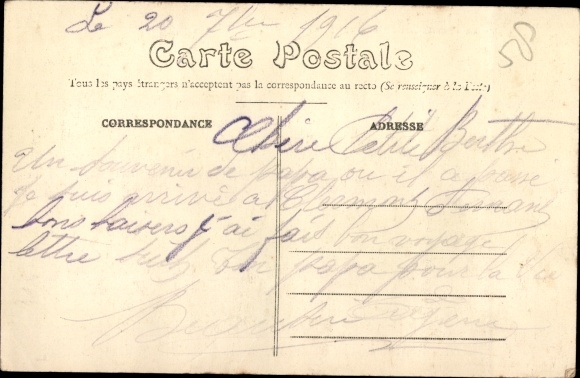 Le 20 7bre 1916
58
Carte Postale
Tous les pays étrangers n'acceptent pas la correspondance au recto (Se renseigner à la Poste)
CORRESPONDANCE
ADRESSE
Chère Petite Berthe
Un souvenir de papa ou il a passé
je suis arrivé a Clermont Ferrand
bons baisers j'ai fait bon voyage
lettre ton papa pour la vie